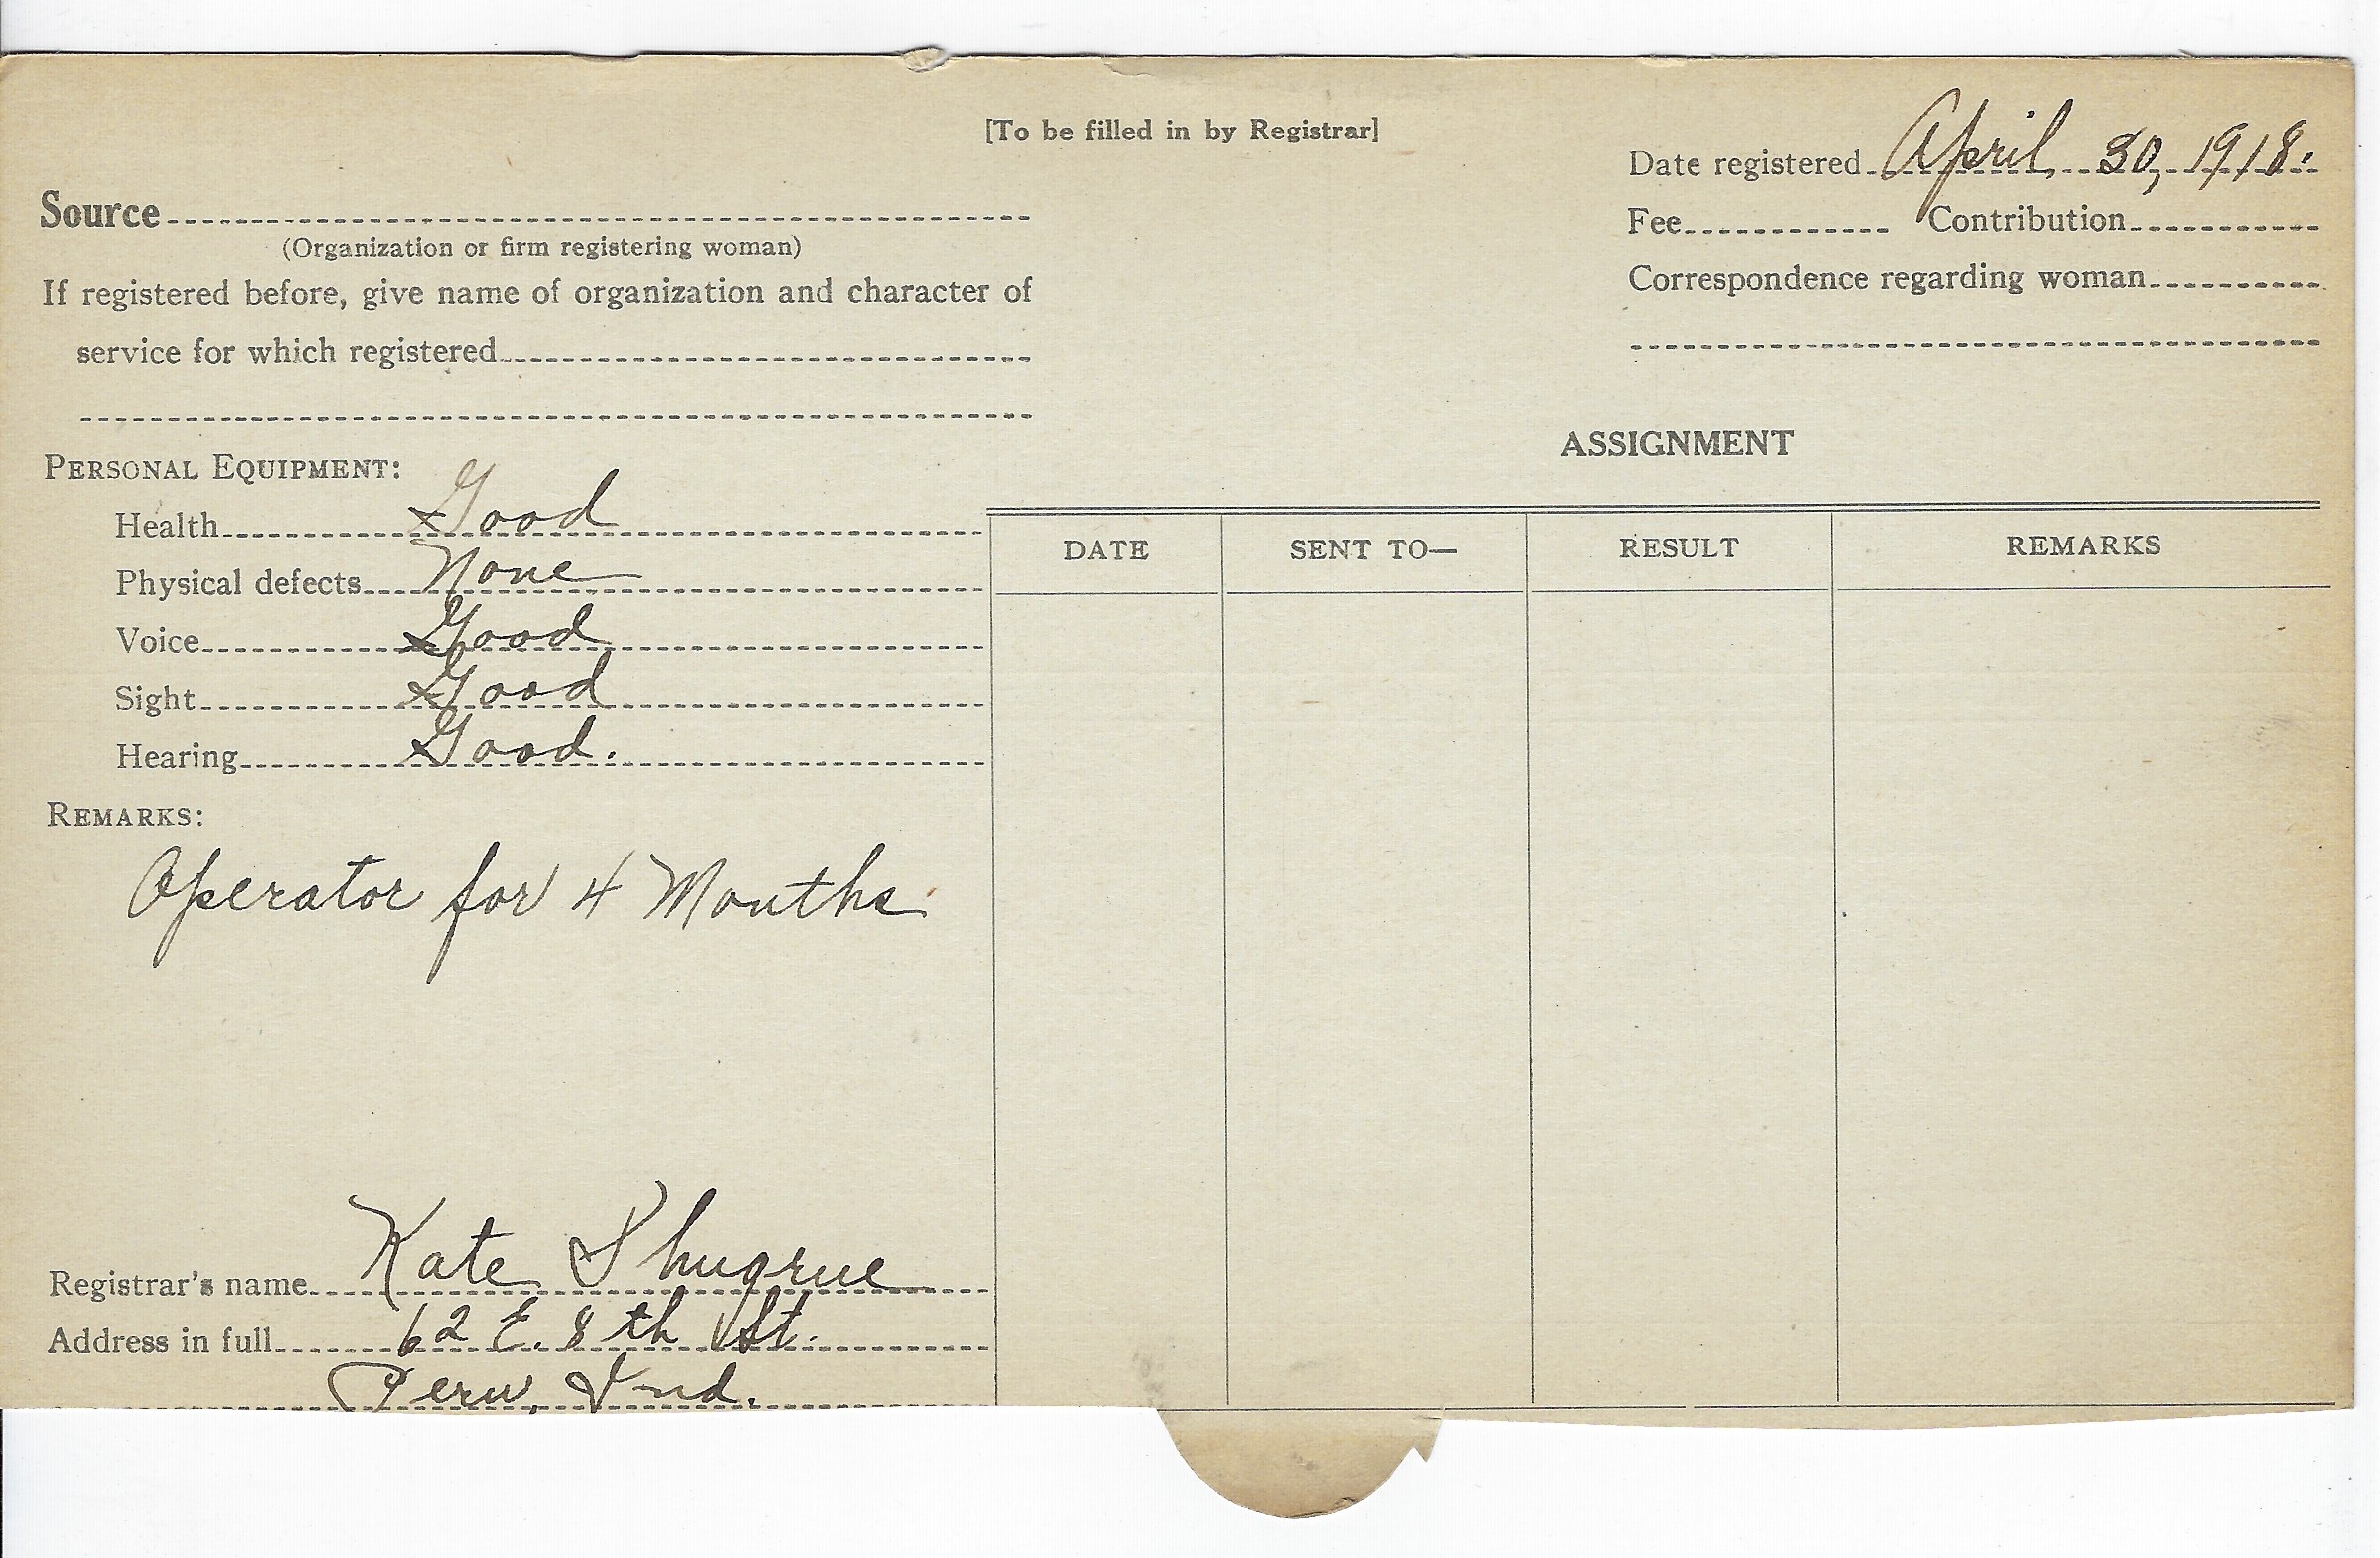 [To be filled in by Registrar]
Date registered April 30, 1918.
Source
Fee Contribution
(Organization or firm registering woman)
Correspondence regarding woman
If registered before, give name of organization and character of
service for which registered
ASSIGNMENT
PERSONAL EQUIPMENT:
Health Good
Physical defects None
Voice Good
Sight Good
Hearing Good.
DATE SENT TO— RESULT REMARKS
REMARKS:
Operator for 4 Months
Registrar's name Kate Shugrue
Address in full 62 E. 8th St.
Peru, Ind.